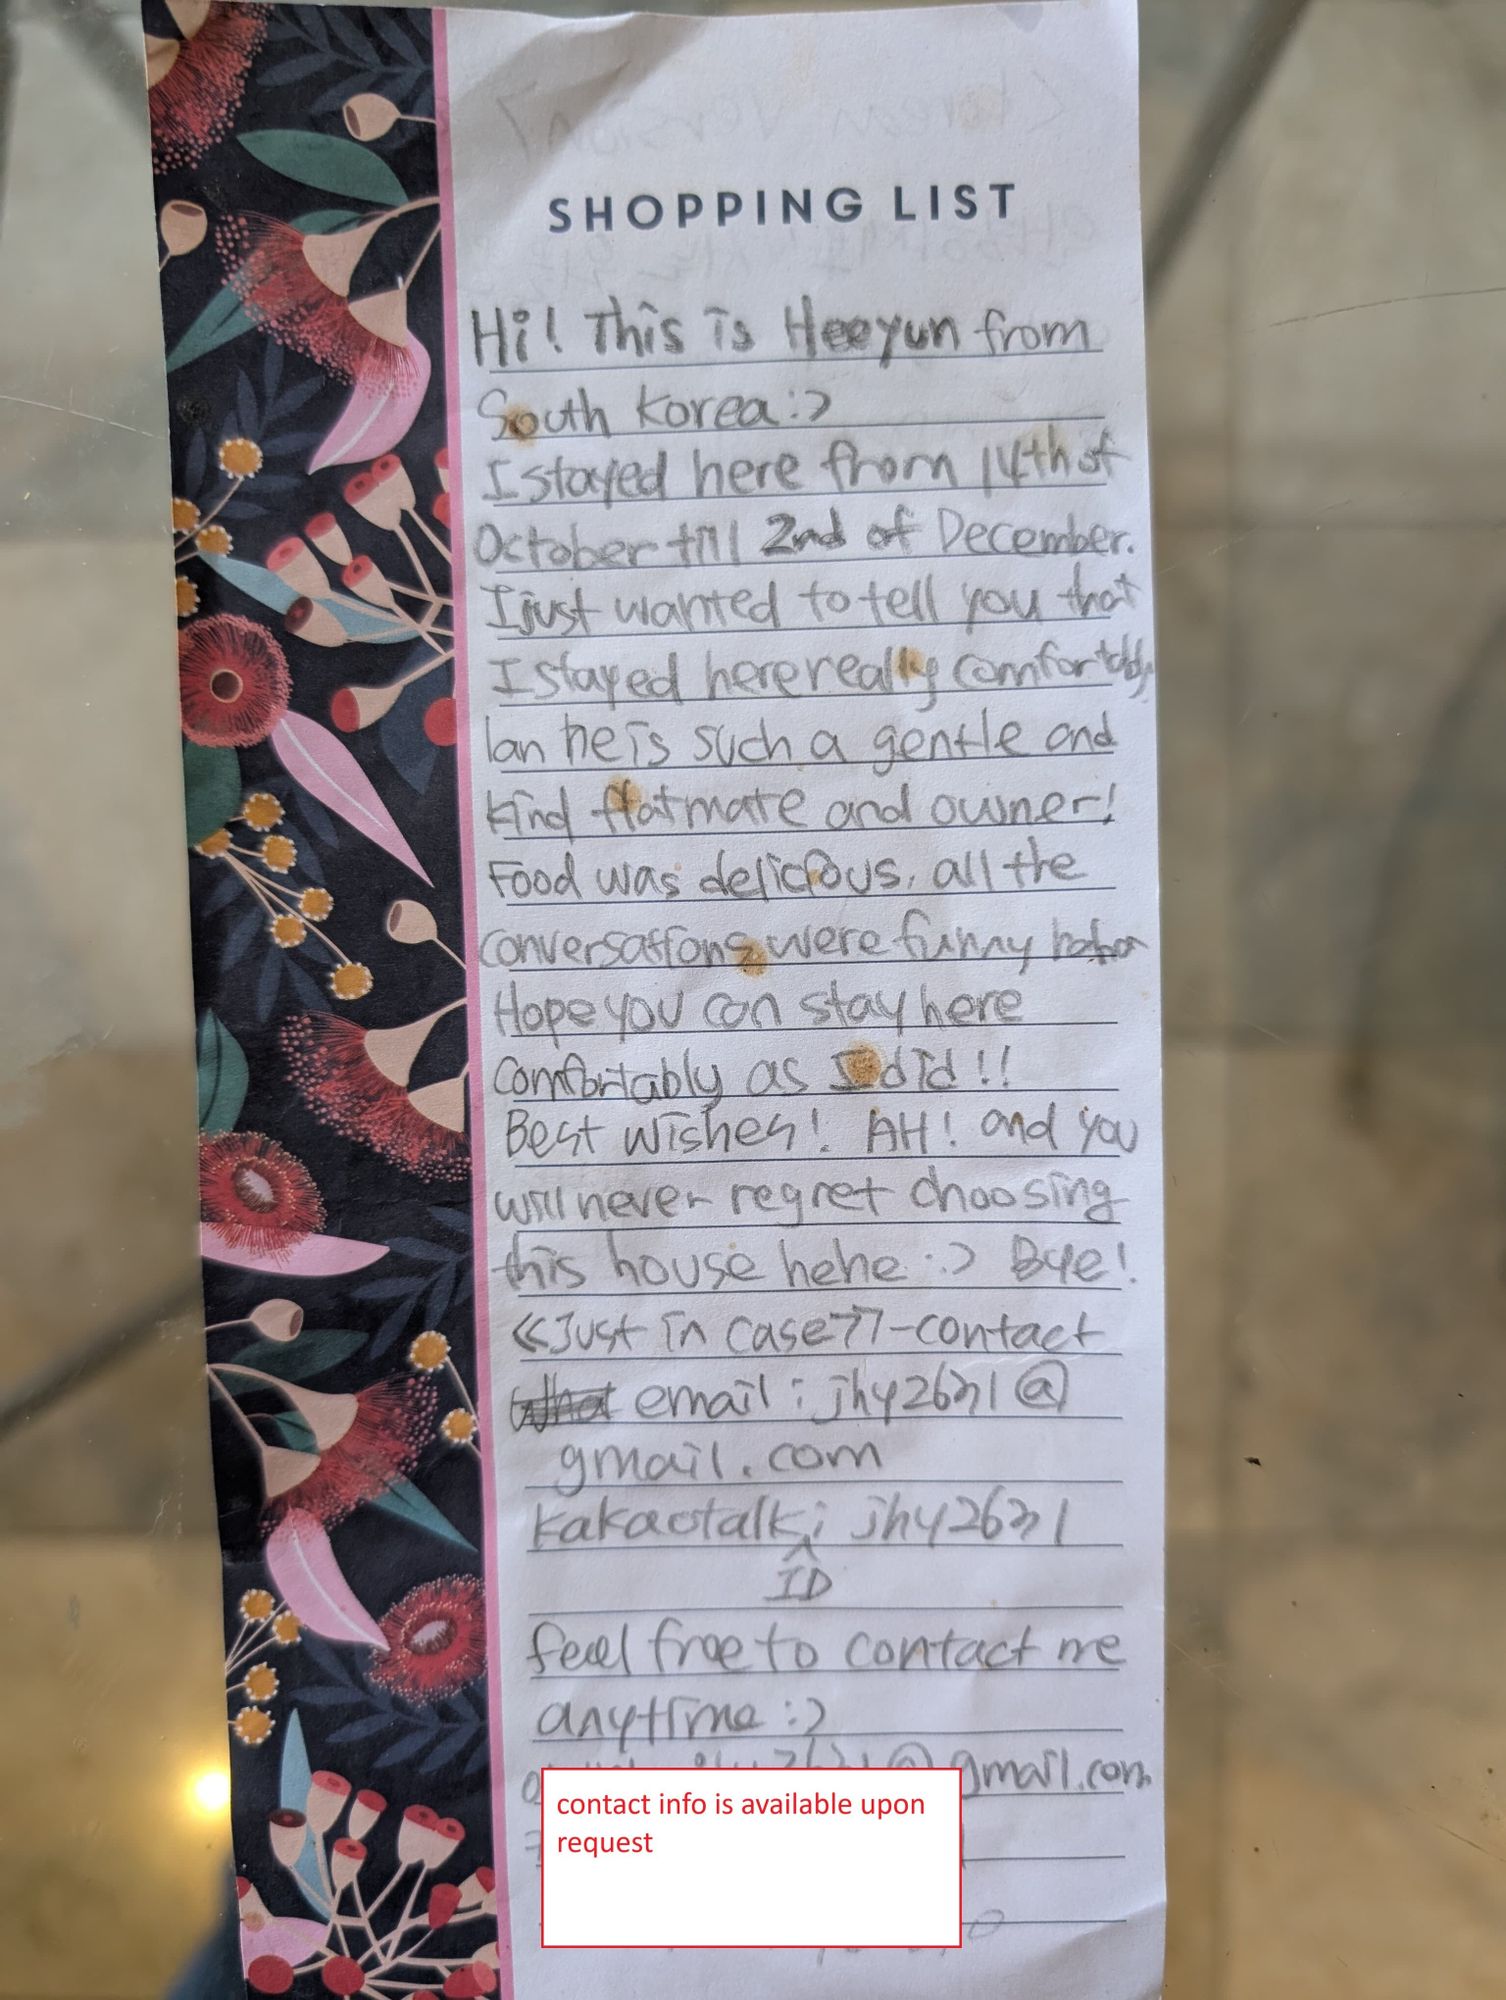 SHOPPING LIST
Hi! This is Heeyun from
South Korea :)
I stayed here from 14th of
October till 2nd of December.
I just wanted to tell you that
I stayed here really comfortably
Ian he is such a gentle and
kind flatmate and owner!
Food was delicious, all the
conversations were funny
Hope you can stay here
comfortably as I did!!
Best wishes! AH! and you
will never regret choosing
this house hehe :) Bye!
<<Just in case>>-contact
email : jhy2631@
gmail.com
kakaotalk; jhy2631
ID
feel free to contact me
anytime :)
@gmail.com
contact info is available upon
request